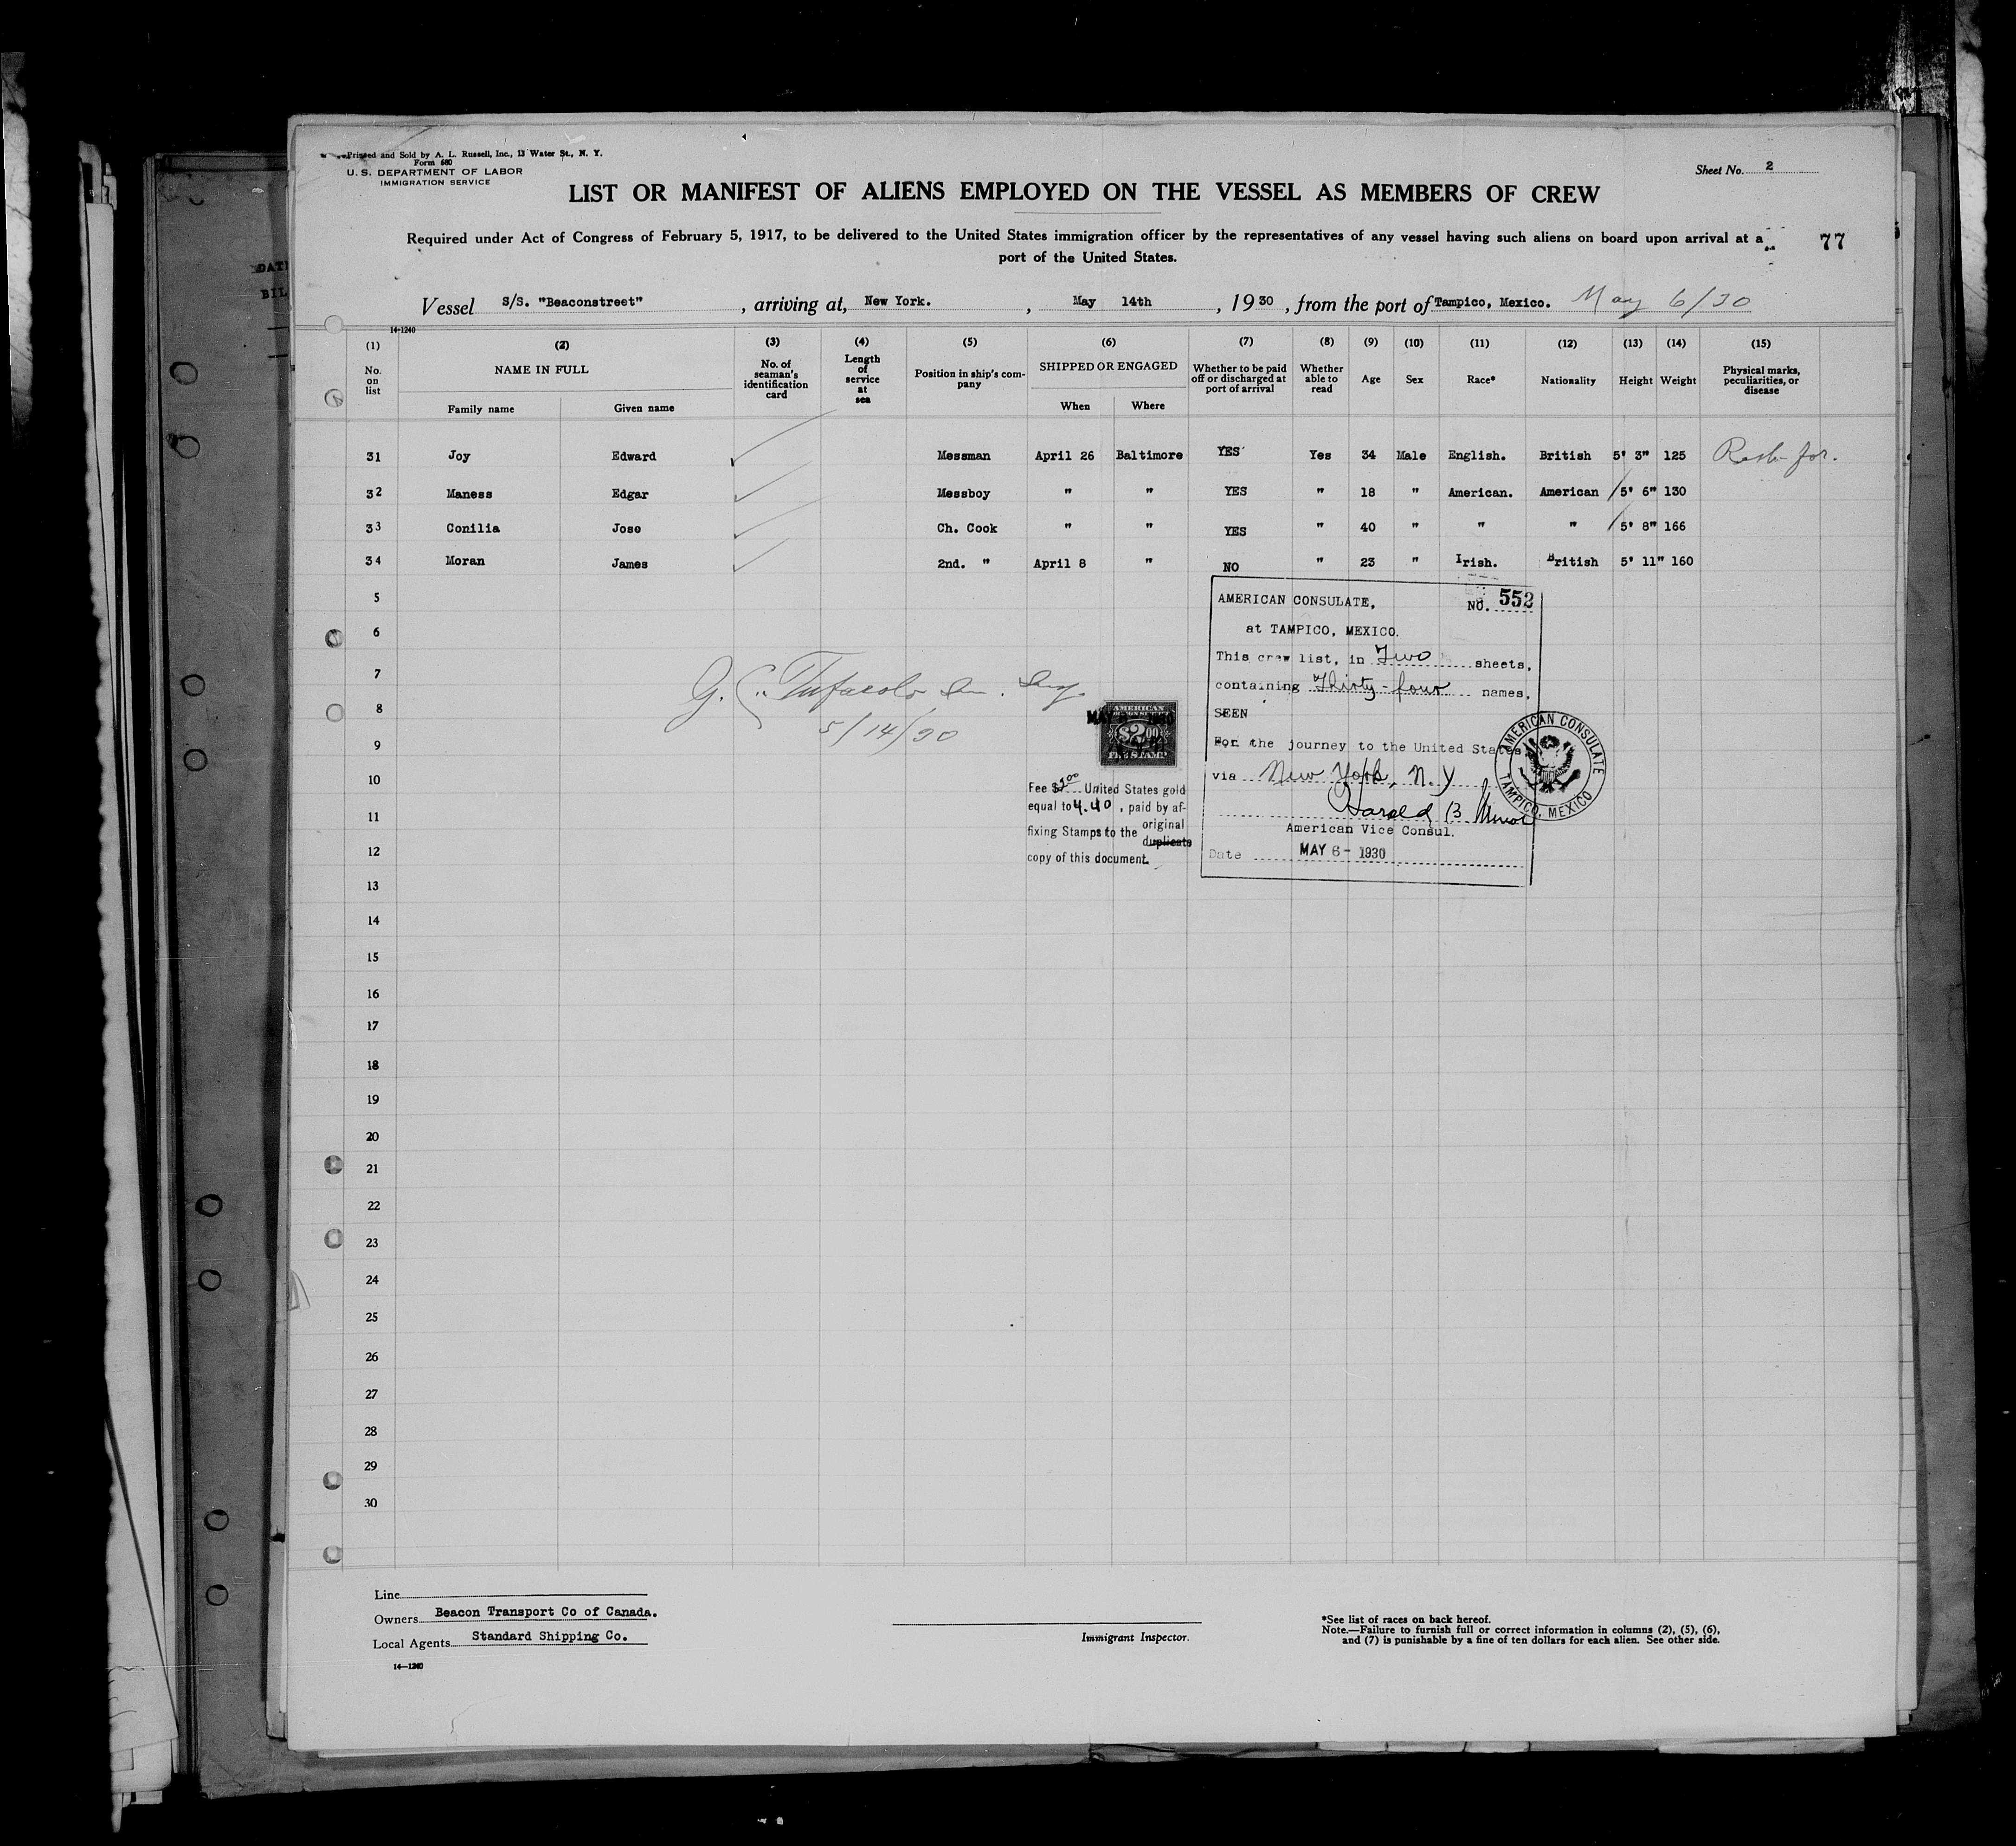 Printed and Sold by A. L. Russell, Inc., 13 Water St., N. Y.
Form 680
U. S. DEPARTMENT OF LABOR
IMMIGRATION SERVICE
Sheet No. 2
LIST OR MANIFEST OF ALIENS EMPLOYED ON THE VESSEL AS MEMBERS OF CREW
Required under Act of Congress of February 5, 1917, to be delivered to the United States immigration officer by the representatives of any vessel having such aliens on board upon arrival at a
port of the United States.
77
Vessel S/S. "Beaconstreet", arriving at, New York., May 14th, 1930, from the port of Tampico, Mexico. May 6/30
14-1240
(1) (2) (3) (4) (5) (6) (7) (8) (9) (10) (11) (12) (13) (14) (15)
No. on list
NAME IN FULL
Family name
Given name
No. of seaman's identification card
Length of service at sea
Position in ship's company
SHIPPED OR ENGAGED
When
Where
Whether to be paid off or discharged at port of arrival
Whether able to read
Age
Sex
Race*
Nationality
Height
Weight
Physical marks, peculiarities, or disease
31 Joy Edward Messman April 26 Baltimore YES Yes 34 Male English. British 5' 3" 125
32 Maness Edgar Messboy " " YES " 18 " American. American 5' 6" 130
33 Conilia Jose Ch. Cook " " YES " 40 " " " 5' 8" 166
34 Moran James 2nd. " April 8 " NO " 23 " Irish. British 5' 11" 160
5
6
7
8
9
10
11
12
13
14
15
16
17
18
19
20
21
22
23
24
25
26
27
28
29
30
5/14/30
AMERICAN CONSULATE, NO. 552
at TAMPICO, MEXICO.
This crew list, in Two sheets,
containing Thirty-four names,
SEEN
For the journey to the United States
via New York, N. Y
Harold B. Minor
American Vice Consul.
Date MAY 6 - 1930
AMERICAN CONSULATE
TAMPICO, MEXICO
AMERICAN
$2.00
FEE STAMP
MAY 6 1930
Fee $2.00 United States gold
equal to 4.40, paid by af-
fixing Stamps to the original
duplicate
copy of this document.
Line
Owners Beacon Transport Co of Canada.
Local Agents Standard Shipping Co.
14—1240
Immigrant Inspector.
*See list of races on back hereof.
Note.—Failure to furnish full or correct information in columns (2), (5), (6),
and (7) is punishable by a fine of ten dollars for each alien. See other side.